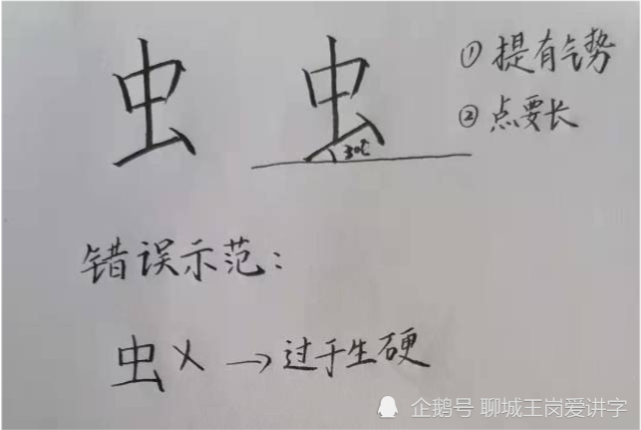 虫 虫 ①提有气势
30℃ ②点要长
错误示范：
虫×→过于生硬
企鹅号 聊城王岗爱讲字